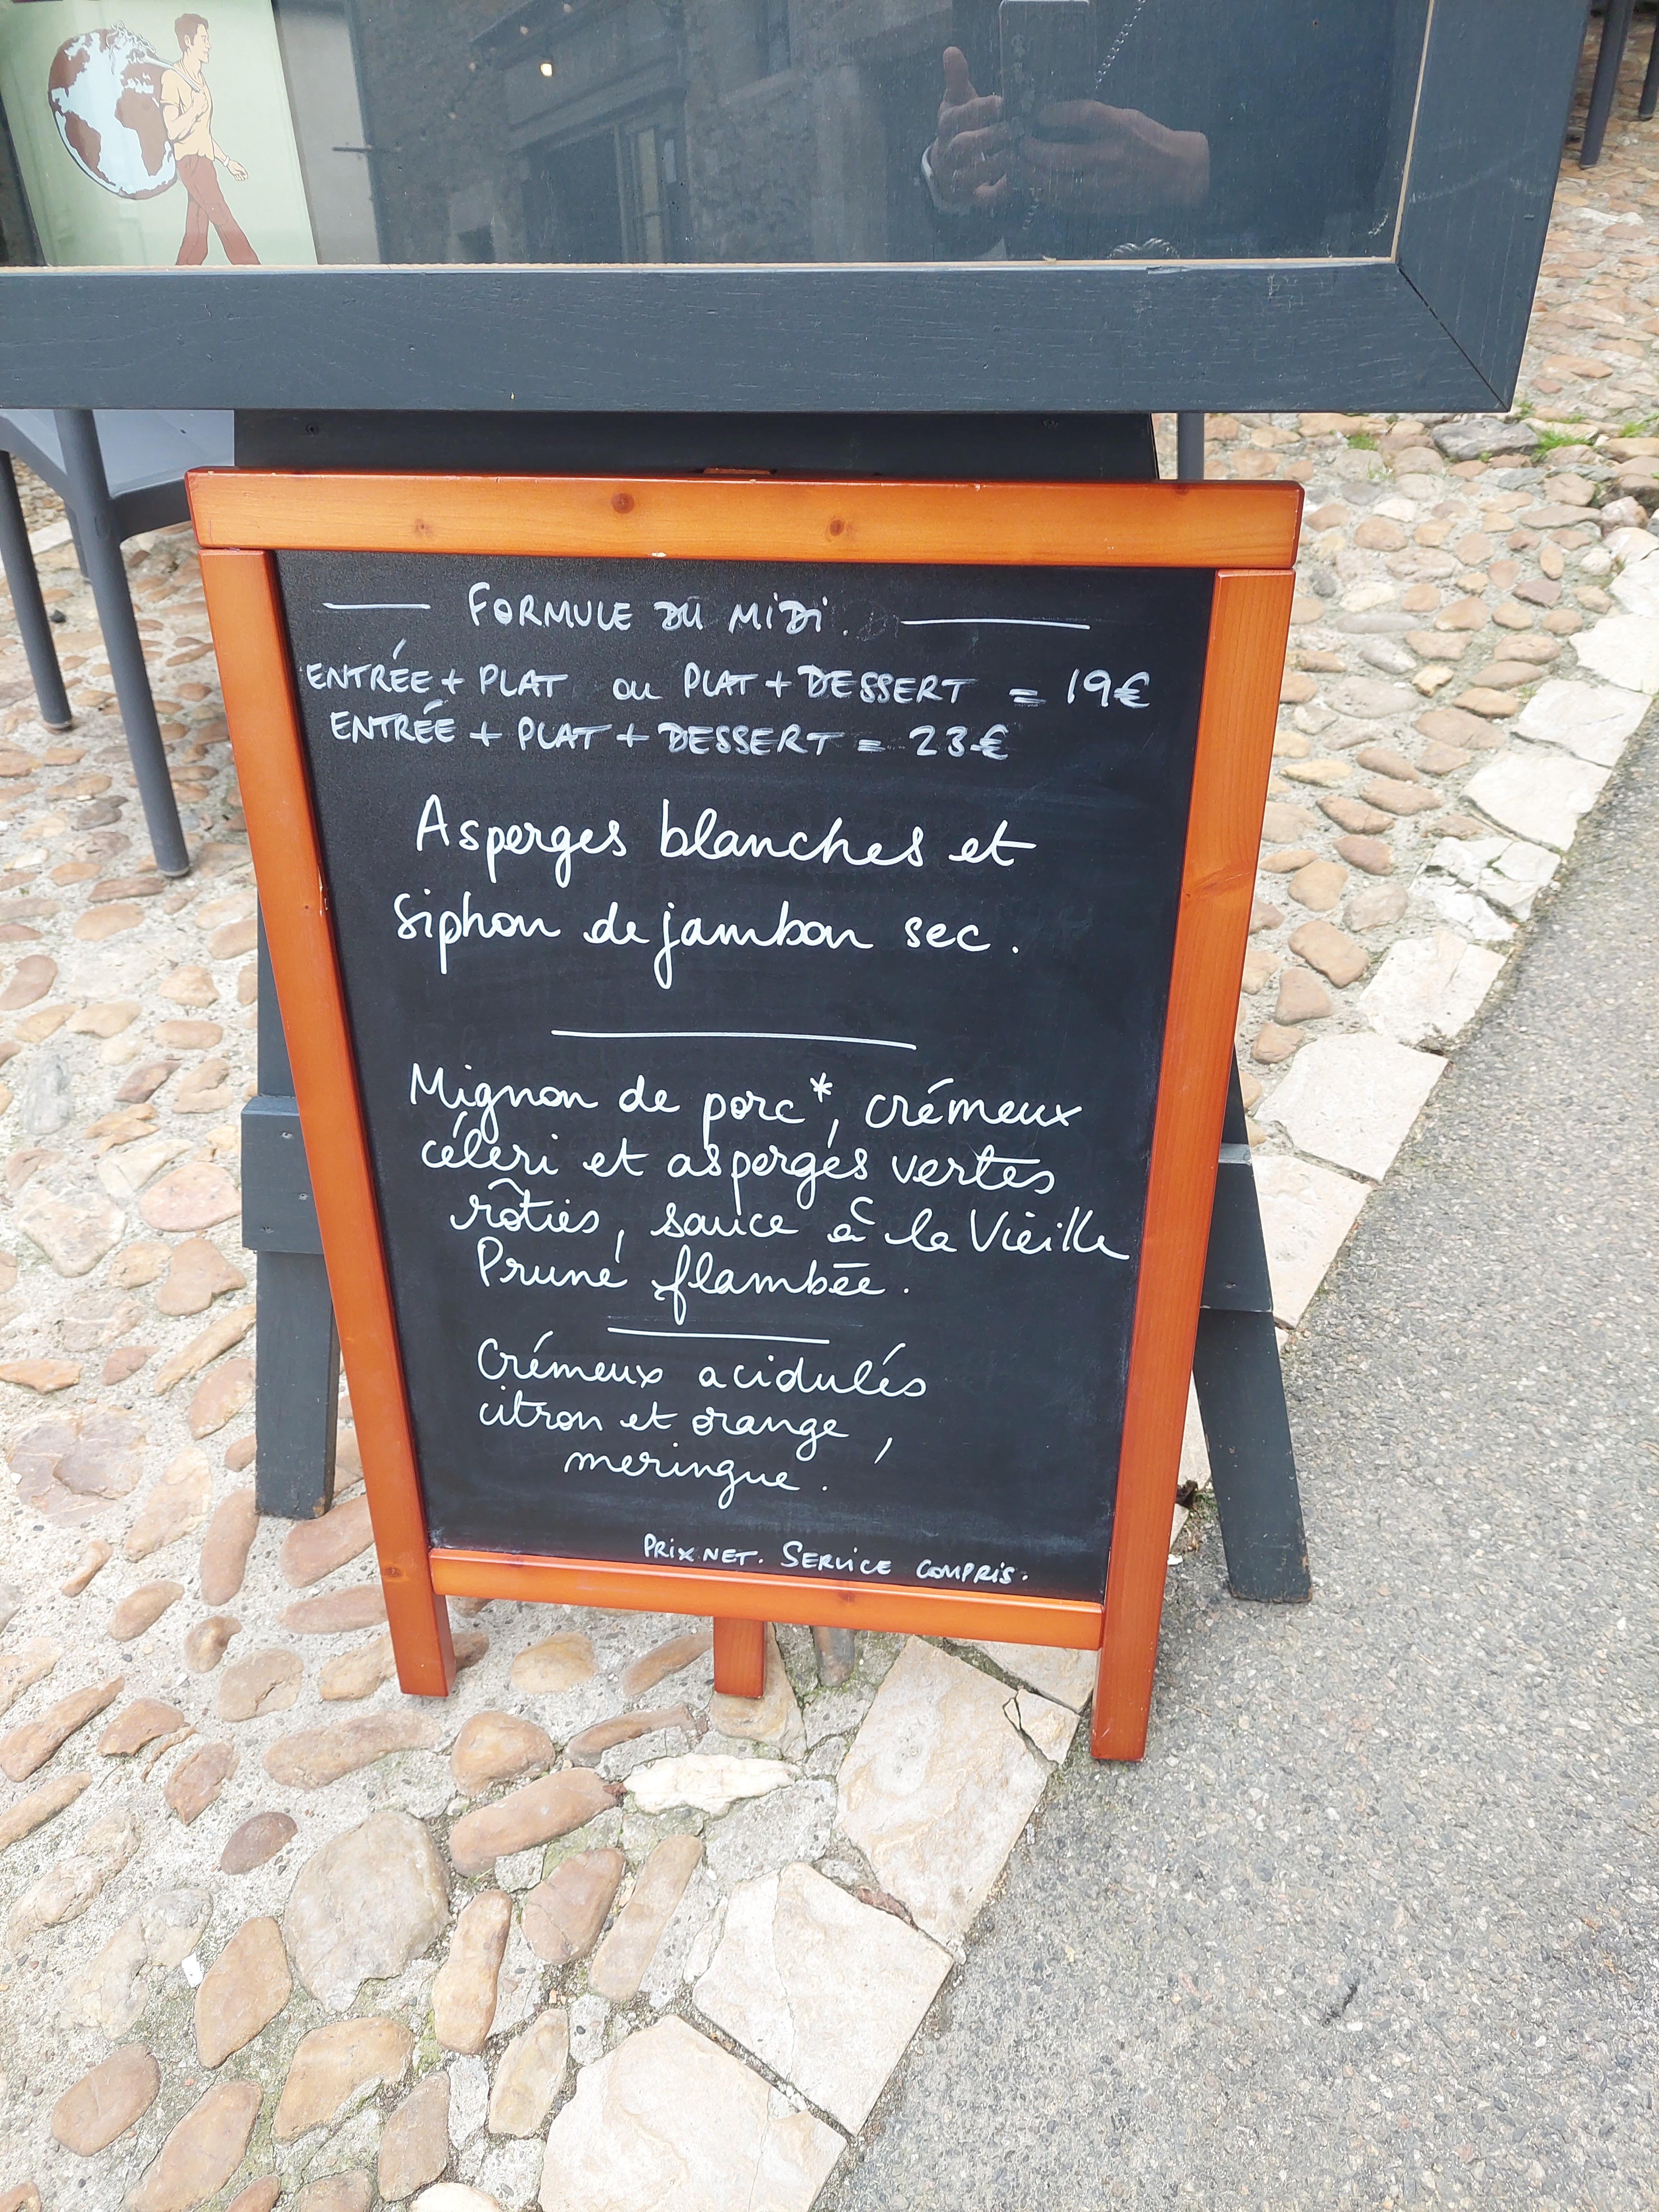 FORMULE DU MIDI.
ENTRÉE + PLAT ou PLAT + DESSERT = 19€
ENTRÉE + PLAT + DESSERT = 23€
Asperges blanches et
siphon de jambon sec.
Mignon de porc*, crémeux
céleri et asperges vertes
rôties, sauce à la Vieille
Prune flambée.
Crémeux acidulés
citron et orange,
meringue.
PRIX NET. SERVICE COMPRIS.